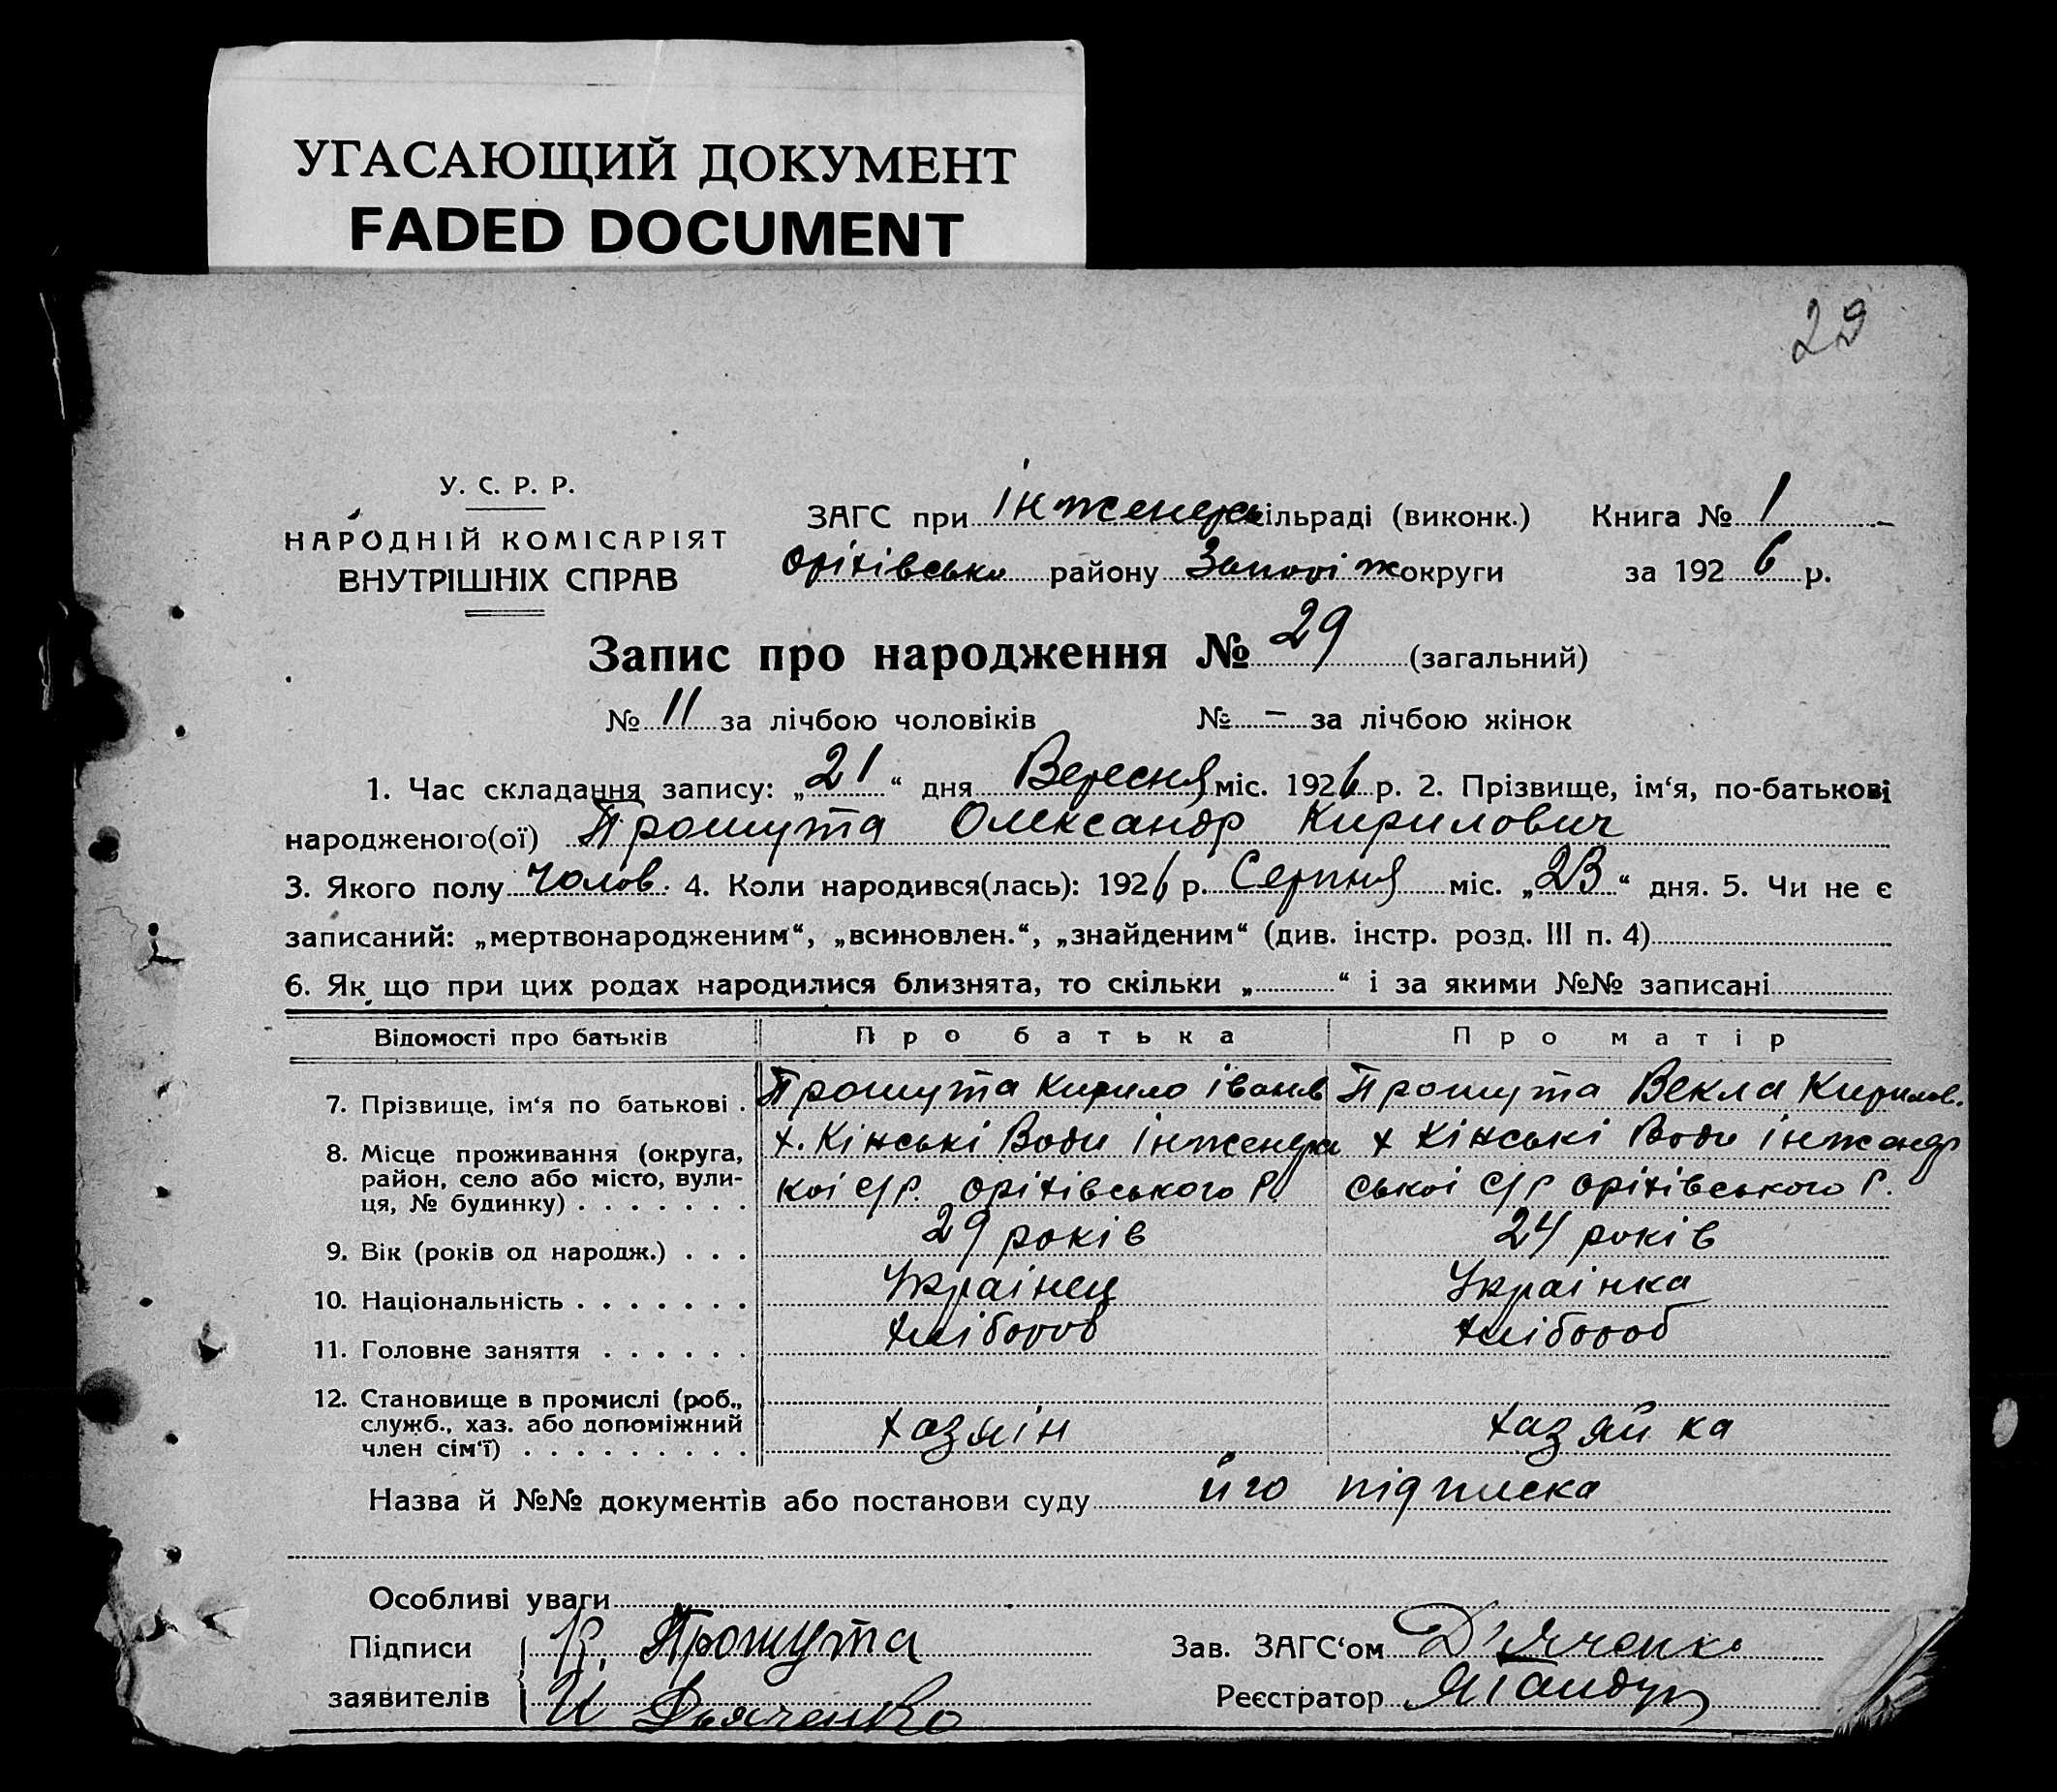 УГАСАЮЩИЙ ДОКУМЕНТ
FADED DOCUMENT
29
У. С. Р. Р.
НАРОДНІЙ КОМІСАРІЯТ
ВНУТРІШНІХ СПРАВ
ЗАГС при інженерсільраді (виконк.) Книга № 1
Оріхівсько району Запоріж округи за 1926 р.
Запис про народження № 29 (загальний)
№ 11 за лічбою чоловіків № – за лічбою жінок
1. Час складання запису: „21“ дня Вересня міс. 1926 р. 2. Прізвище, ім‘я, по-батькові
народженого(ої) Прошута Олександр Кирилович
3. Якого полу чолов. 4. Коли народився(лась): 1926 р. Серпня міс. „23“ дня. 5. Чи не є
записаний: „мертвонародженим“, „всиновлен.“, „знайденим“ (див. інстр. розд. III п. 4)
6. Як що при цих родах народилися близнята, то скільки „ “ і за якими №№ записані
Відомості про батьків Про батька Про матір
7. Прізвище, ім‘я по батькові . Прошута Кирило Іванов Прошута Векла Кирилов.
8. Місце проживання (округа, х. Кінські Води інженерн х Кінські Води інженер
район, село або місто, вули- кої С/Р. Оріхівського Р. ської С/Р Оріхівського Р.
ця, № будинку) . . . . . . .
9. Вік (років од народж.) . . . 29 років 24 років
10. Національність . . . . . . . Українец Українка
11. Головне заняття . . . . . . хлібороб хлібороб
12. Становище в промислі (роб.,
служб., хаз. або допоміжний хазяін хазяйка
член сім‘ї) . . . . . . . . .
Назва й №№ документів або постанови суду його підписка
Особливі уваги
Підписи К. Прошута Зав. ЗАГС‘ом Д'яченко
заявителів И Дьяченко Реєстратор